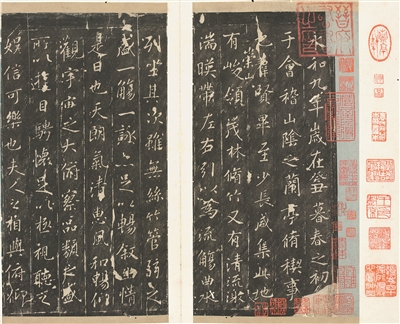 永和九年歲在癸丑暮春之初
于會稽山陰之蘭亭脩禊事
也群賢畢至少長咸集此地
有崇山峻領茂林脩竹又有清流激
湍暎帶左右引以為流觴曲水
列坐其次雖無絲竹管弦之
盛一觴一詠亦足以暢敘幽情
是日也天朗氣清惠風和暢仰
觀宇宙之大俯察品類之盛
所以遊目騁懷足以極視聽之
娛信可樂也夫人之相與俯仰